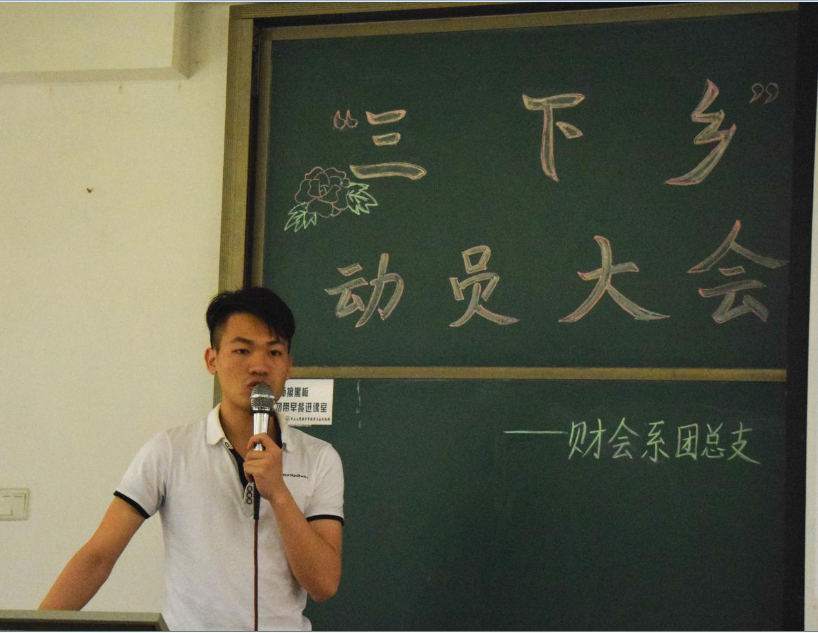 “三下乡”
动员大会
——财会系团总支
带早餐进课室